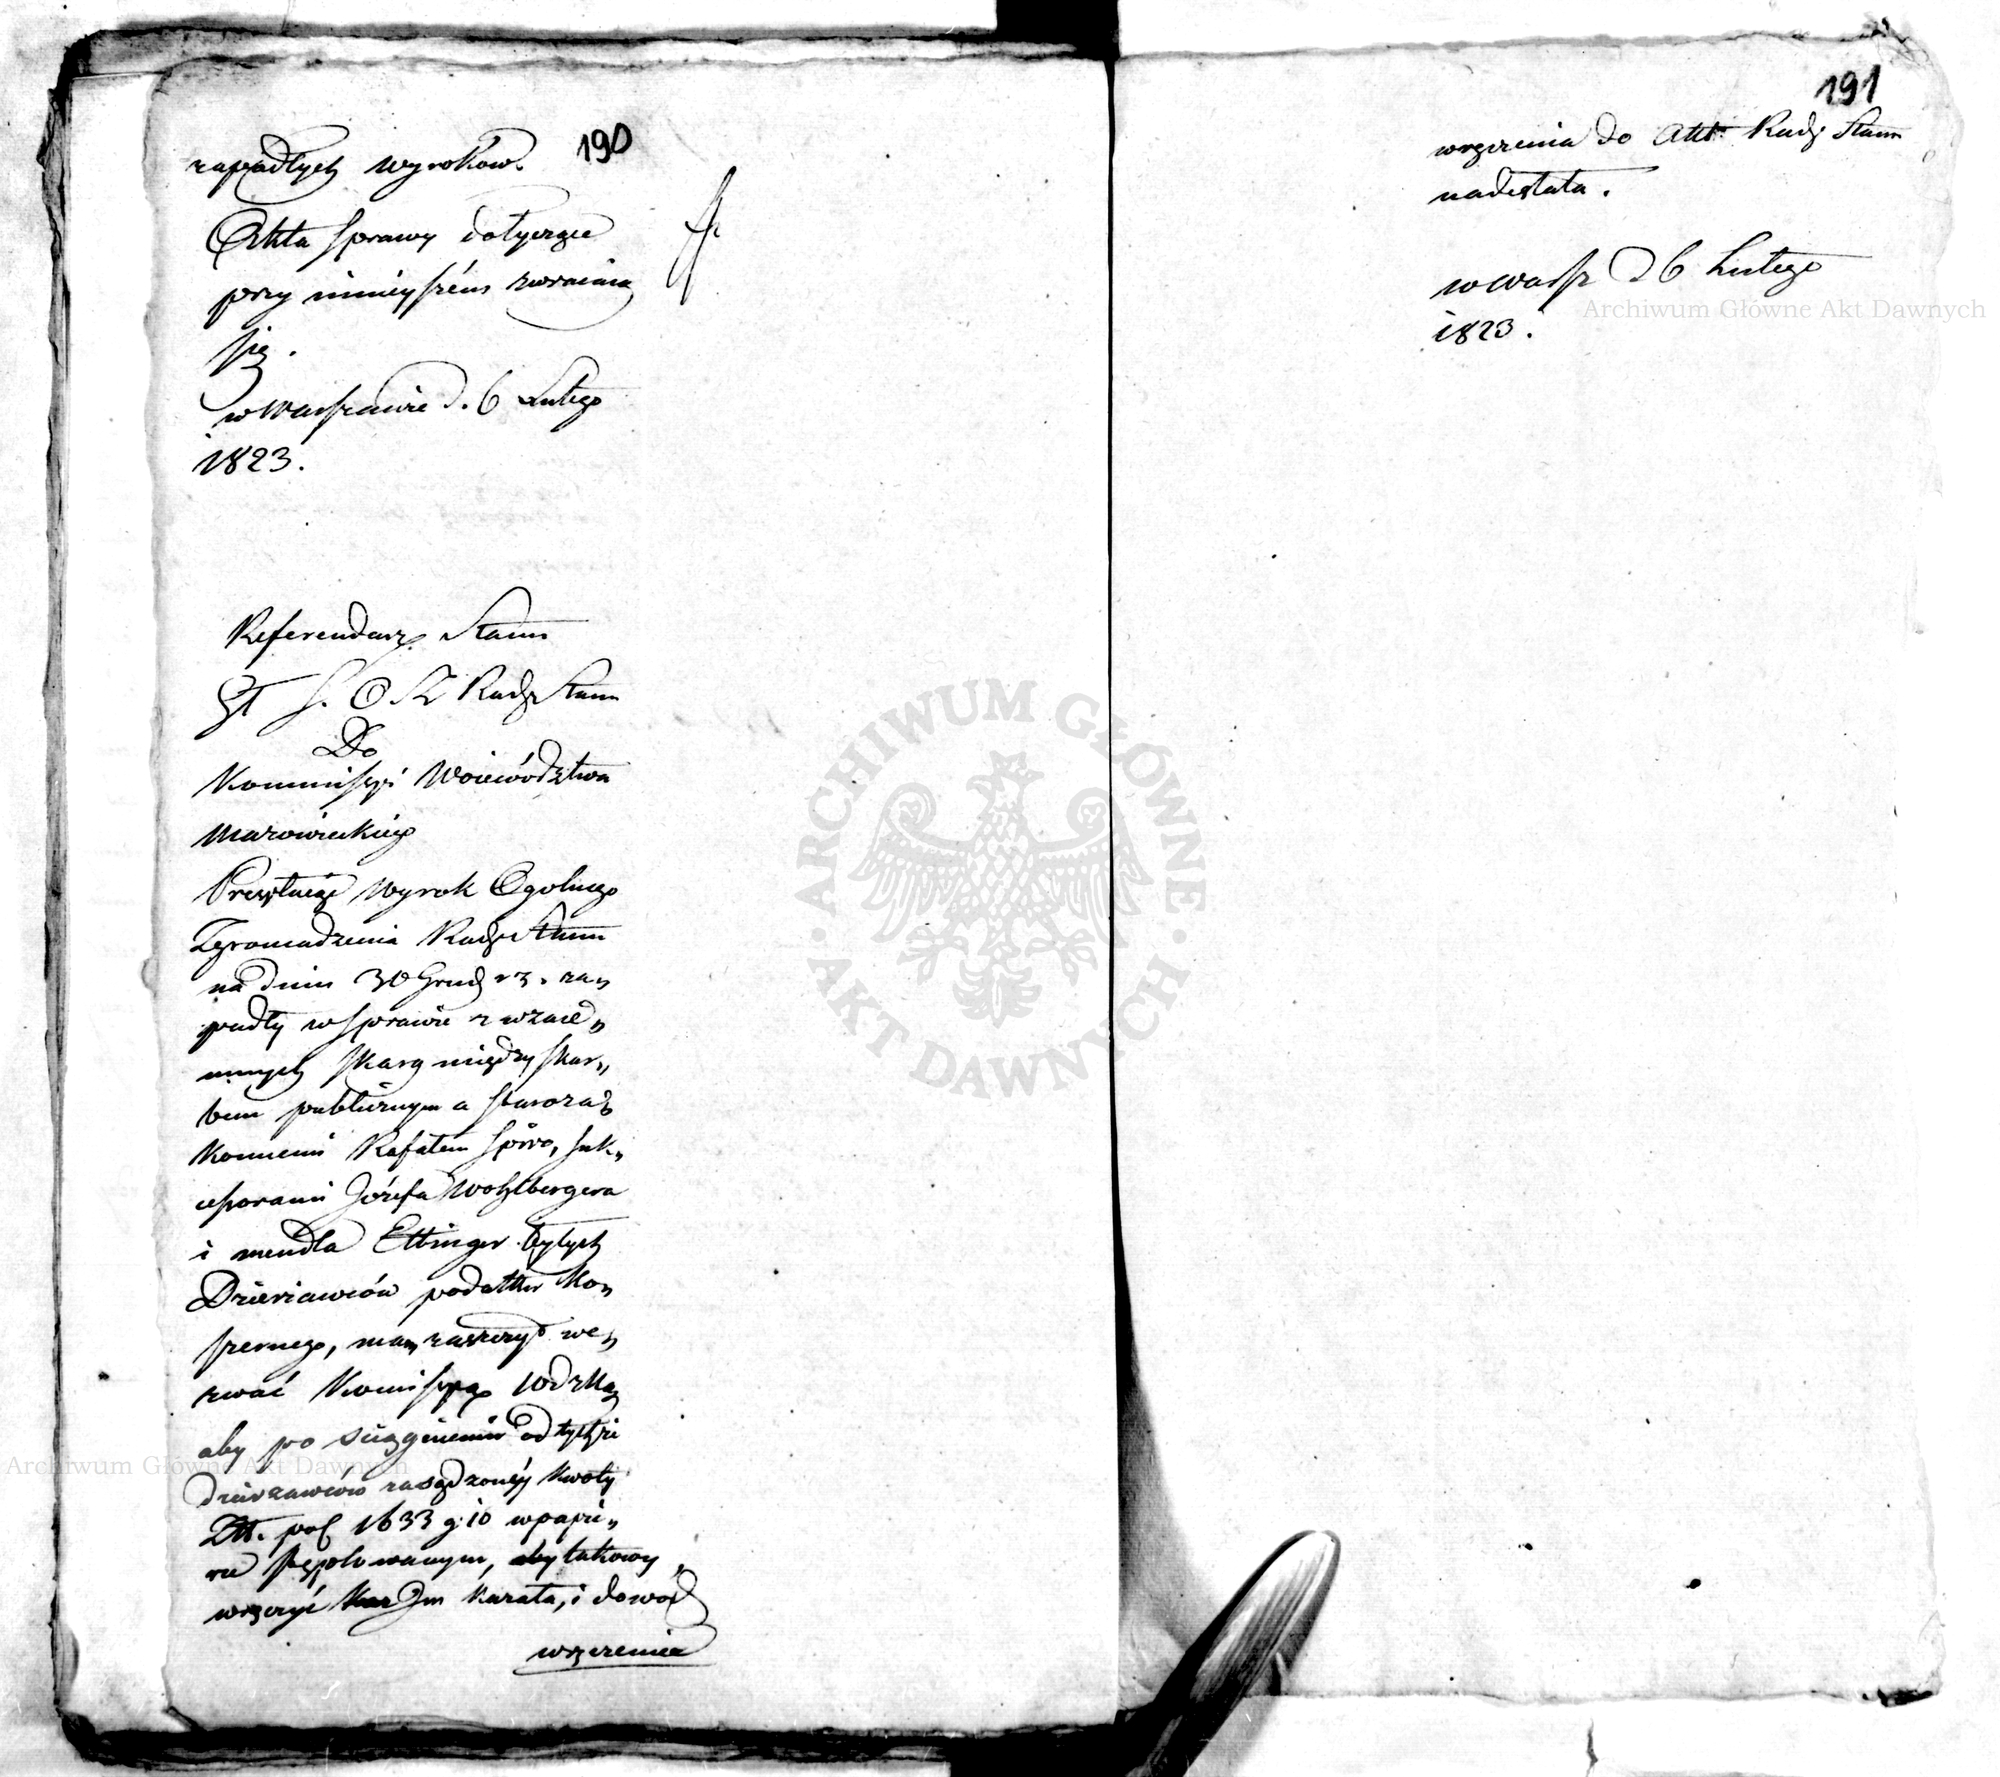 190
zapadłych wyrokow.
Akta sprawy dotyczące
przy ninieyszém zwracaią
się.
w Warszawie d. 6 Lutego
1823.
Referendarz Stanu
Do
Kommissyi Woiewództwa
Mazowieckiego
Przesyłaiąc Wyrok Ogolnego
Zgromadzenia Rady Stanu
na dniu 30 Grud. r z. za„
padły w sprawie z wzaie„
mnych skarg między skar„
bem publicznym a staroza„
konnemi Rafałem Spiro, suk„
cessorami Józefa Wohlbergera
i Mendla Ettinger byłych
Dzierżawców podatku ko„
szernego, mam zaszczyt we„
zwać Kommissyą Wdzką
aby po ściągnieniu od tychże
dzierżawców zasądzonéy kwoty
Złt. pol 1633 g. 10 w papie„
rze stęplowanym, aby takowy
wręczyć kazała, i dowód
wręczenia
191
wręczenia do Akt Rady Stanu
nadesłała.
w Warsz d 6 Lutego
1823.
Archiwum Główne Akt Dawnych
Archiwum Główne Akt Dawnych
ARCHIWUM GŁÓWNE AKT DAWNYCH